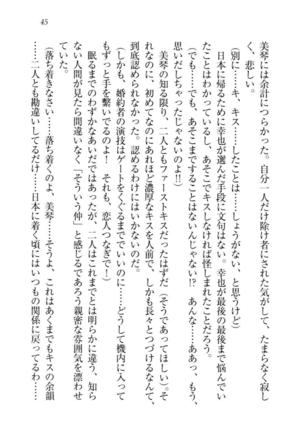 45
美琴には余計につらかった。自分一人だけ除け者にされた気がして、たまらなく寂し
く、悲しい。
(別に……キ、キス……したことは……しょうがない、と思うけど)
日本に帰るために幸也が選んだ手段に文句はない。幸也が最後の最後まで悩んでい
たことはわかっているし、あそこでキスしなければ怪しまれたことだろう。
(で、でも……あそこまですることはないんじゃない!? あんな……ああっ、もう、
思いだしちゃったじゃないのよ!!)
美琴の知る限り、二人ともファーストキスだったはずだ(そうであってほしい)。そ
れなのに、初めてなのにあれほど濃厚なキスを人前で、しかも長々とつづけるなんて、
到底認められなかった。認めるわけにはいかないのだ。
(しかも、婚約者の演技はゲートをくぐるまででいいのに……どうして機内に入って
もずっと手を繋いでるのよ! それも、恋人つなぎで!)
眠るまでのわずかなあいだではあったが、二人はこれまでとは明らかに違う、知ら
ない人間が見たら間違いなく「そういう仲」と感じるであろう親密な雰囲気を漂わせ
ていた。
(落ち着きなさい……落ち着くのよ、美琴……そうよ、これはあくまでもキスの余韻
……二人とも勘違いしてるだけ……日本に着く頃にはいつもの関係に戻ってるわ……